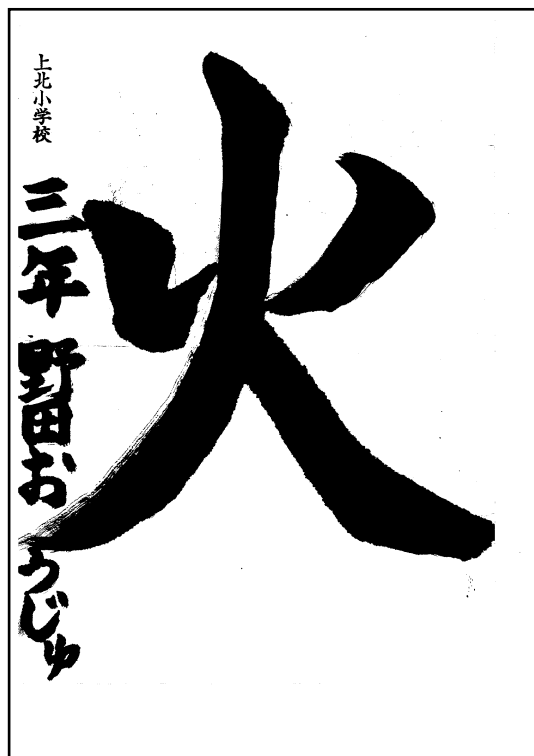 火
上北小学校
三年 野田おうじゅ